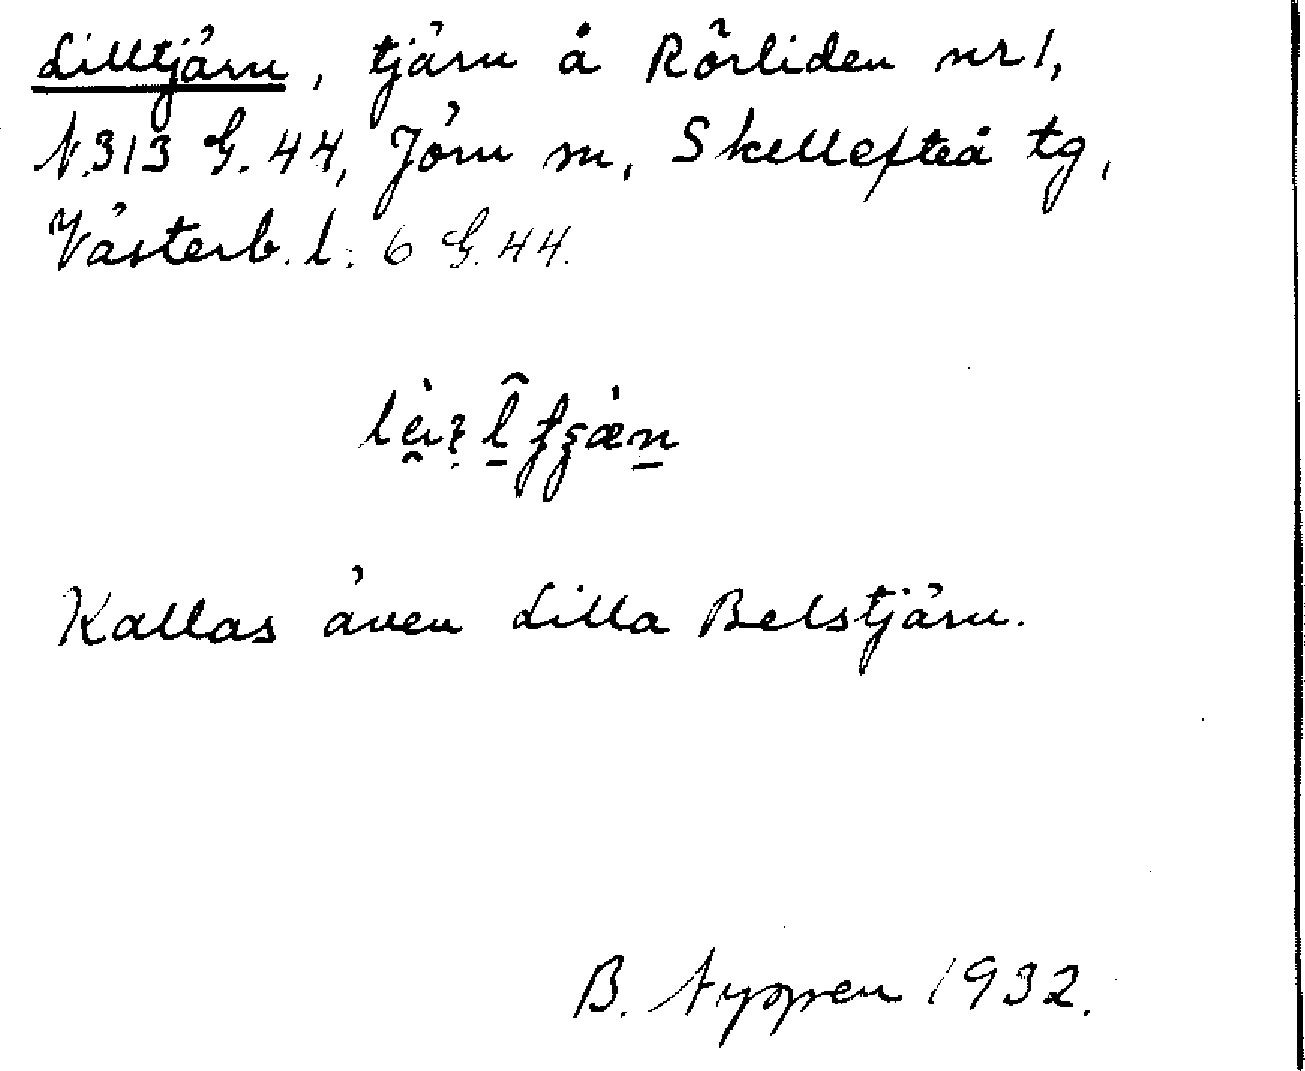 Lilltjärn, tjärn å Rörliden nr 1,
N.313 G.44, Jörn sn, Skellefteå tg,
Västerb. l. 6 G.44.
Kallas även Lilla Belstjärn.
B. 1932.